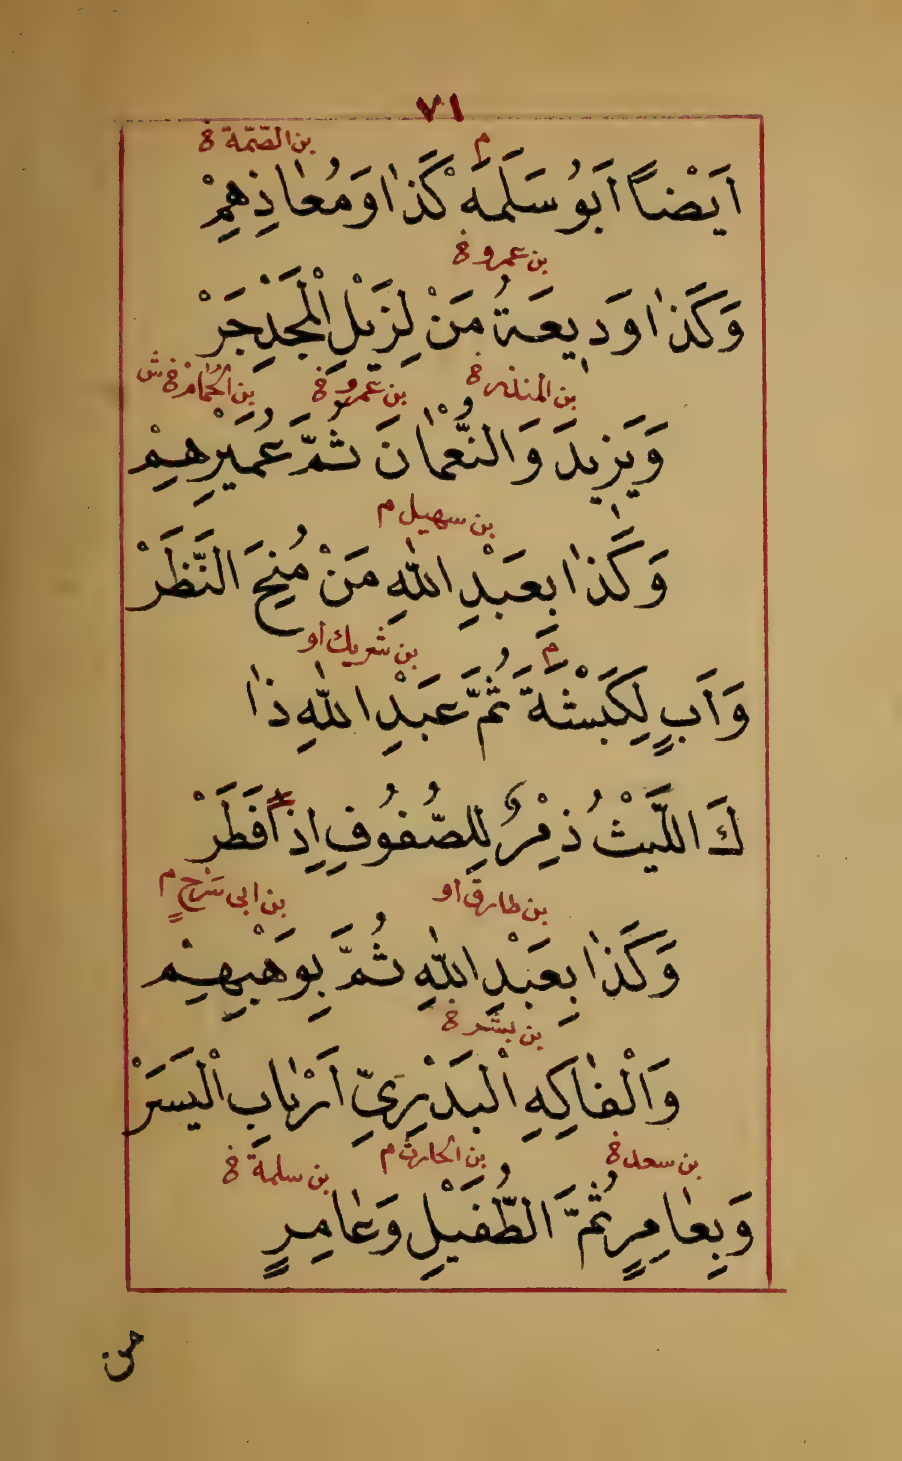 ٧١
م بن الصّمّة خ
اَيَضْاً اَبَوُ سَلَمَه كَذٰا وَ مُعٰاذِهِمِْ
بن عمرو خ
وَكَذٰا وَدِيعَةُ مَنْ لِزَيْلِ الْمَجَدْ جَرْ
بن المنذر خ بن عمرو خ بن الحُمام خ ش
وَيَزِيدَ وَالنُّعْمٰانَ ثُمَّ عُمَيْرِهِمْ
بن سهيل م
وَكَذٰا بِعَبْدِ اللّٰهِ مَنْ مُنِحَ النَّظَرْ
م بن شريك او
وَاَبٍ لِكَبْشَةَ ثُمَّ عَبْدِ اللّٰهِ ذٰا
كَ اللَّيْثُ ذِمْرٌ لِلصُّفُوُفِ اِذٰا فَطَرْ
بن طارق او بن ابى سَرْحٍ م
وَكَذٰا بِعَبْدِ اللّٰهِ ثُمَّ بِوَهْبِهِمْ
بن بشر خ
وَالْفٰاكِهِ الْبَدْرِىِّ اَرْبٰابِ الْيَسَرْ
بن سعد خ بن الحارث م بن سلمة خ
وَبِعٰامِرٍ ثُمَّ الطُّفَيْلِ وَعٰامِرٍ
من